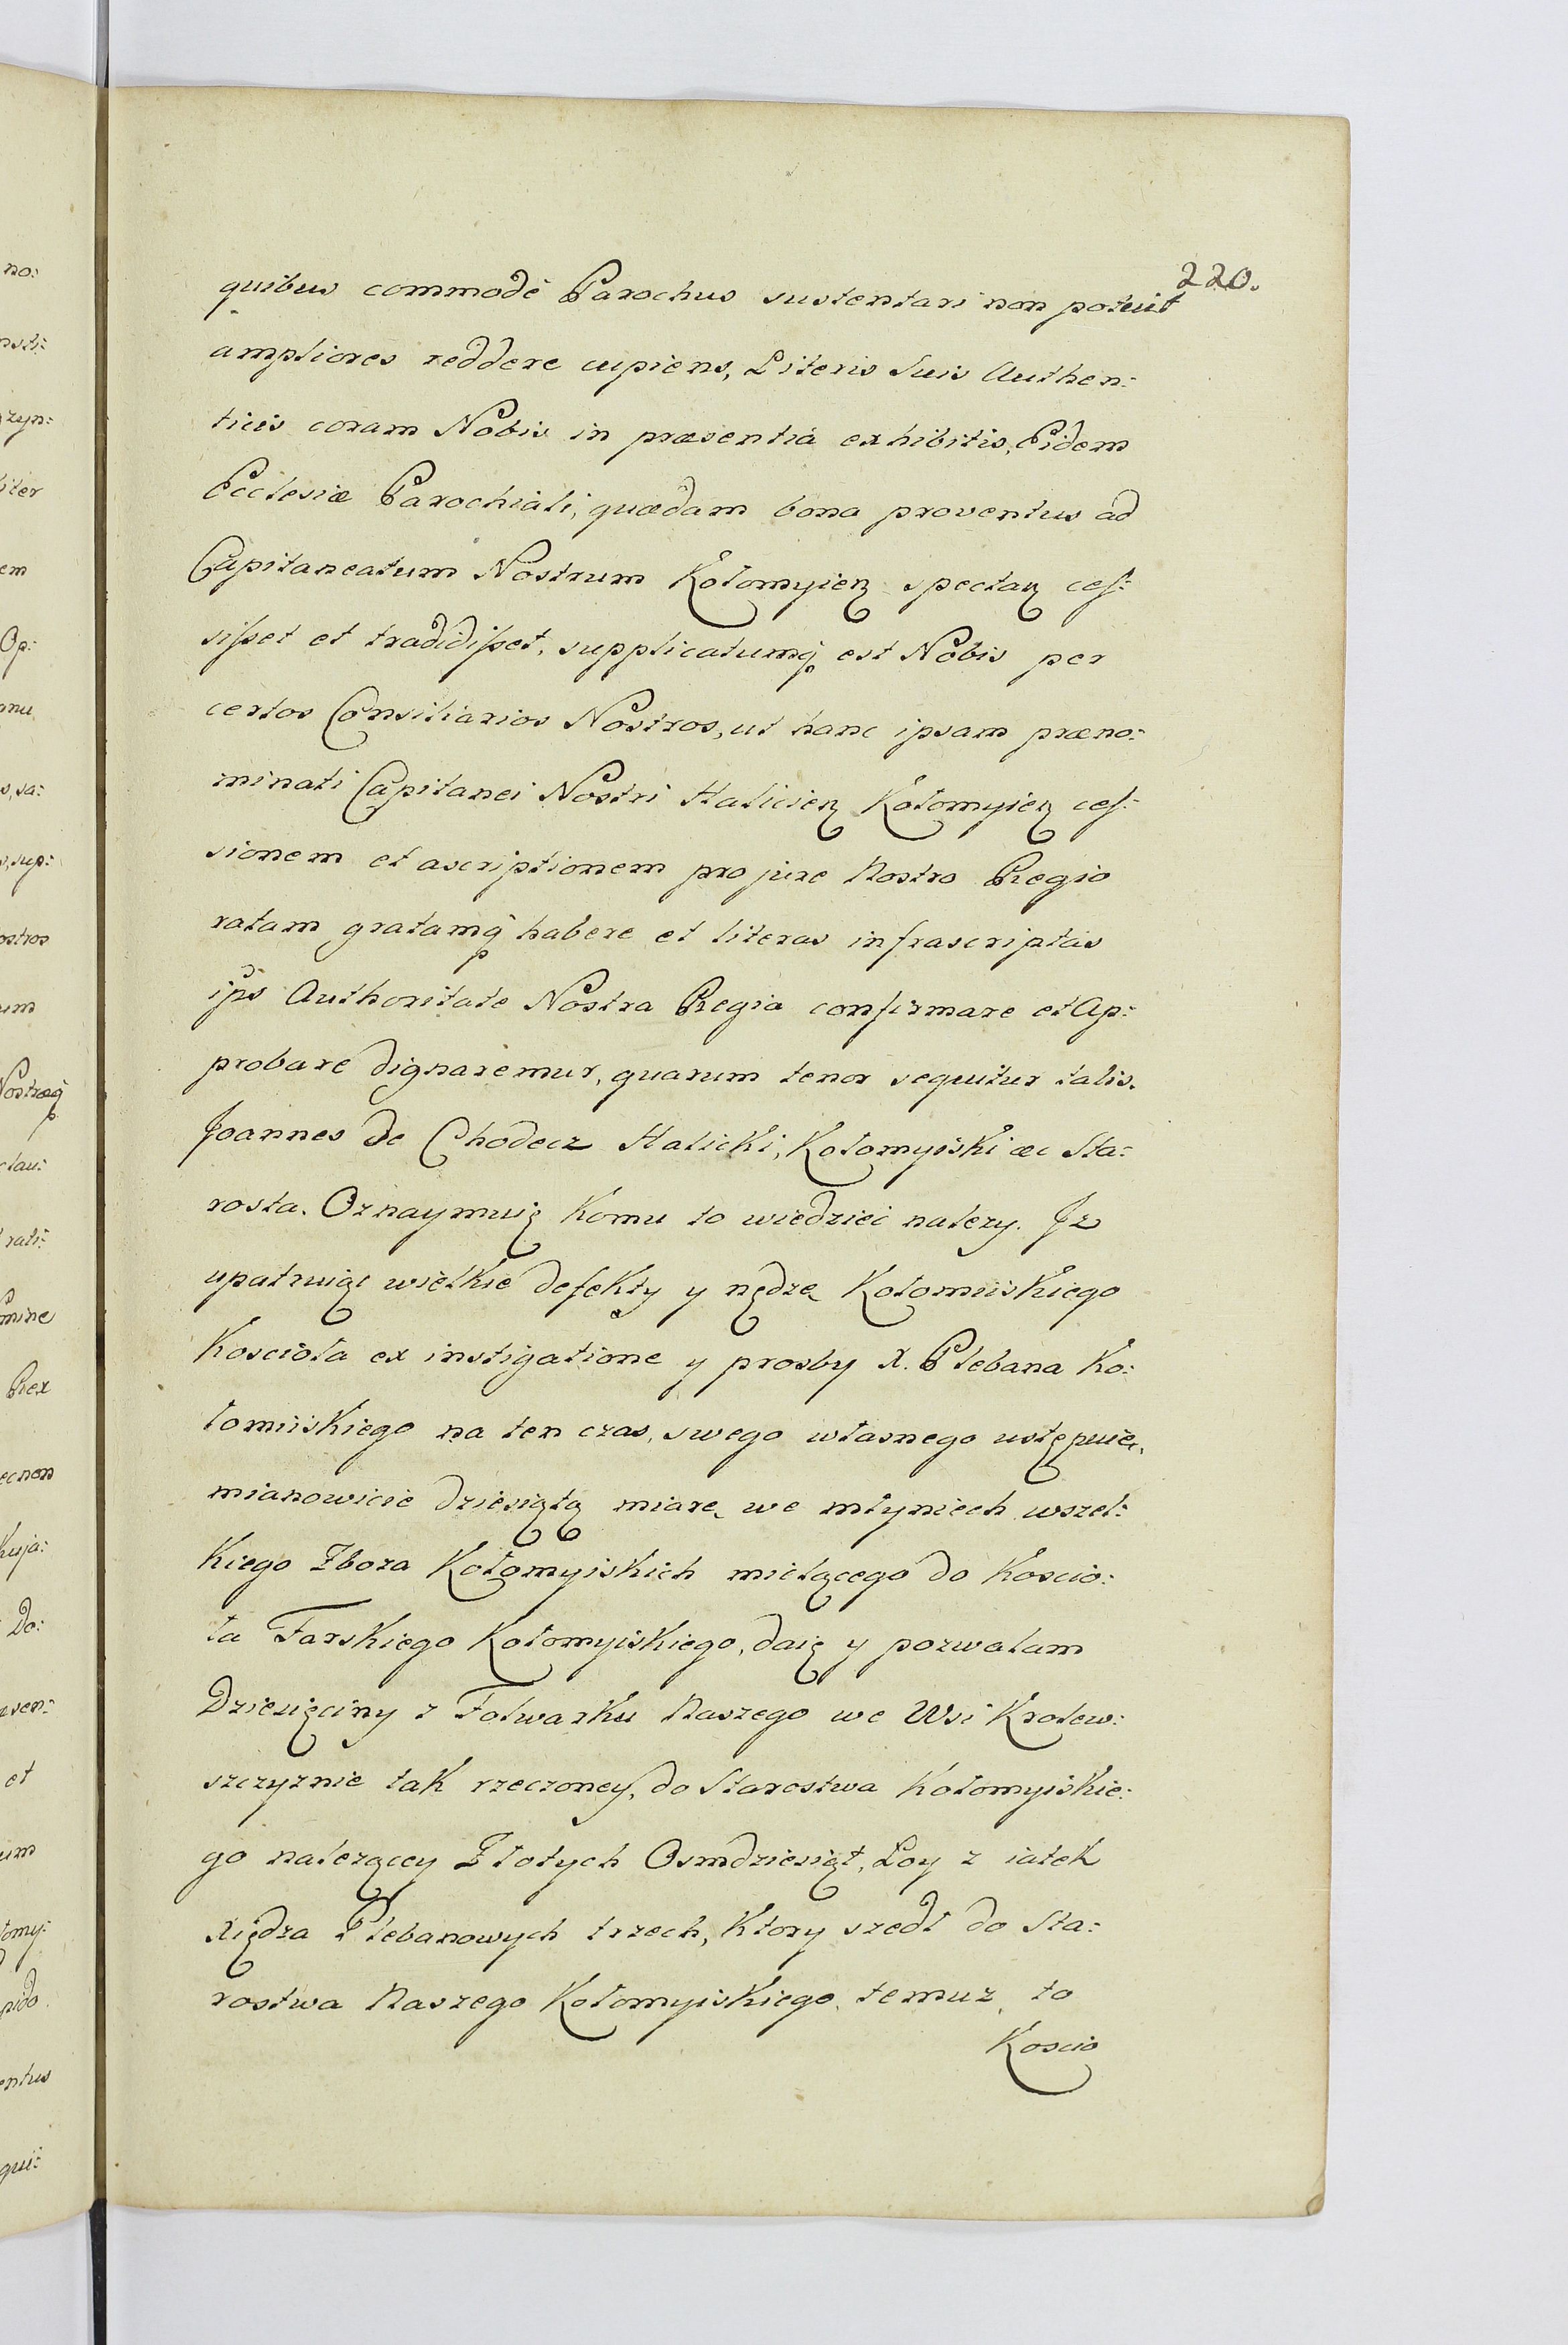 220.
quibus commodè Parochus sustentari non potuit
ampliores reddere cupiens, Literis Suis Authen:
ticis coram Nobis in præsentiá exhibitis, Eidem
Ecclesiæ Parochiali, quædam bona proventus ad
Capitaneatum Nostrum Kołomyien spectan ces:
sisset et tradidisset, supplicatumq est Nobis per
certos Consiliarios Nostros, ut hanc ipsam præno:
minati Capitanei Nostri Halicien Kołomyien ces:
sionem et ascriptionem pro jure Nostro Regio
ratam gratamq habere et literas infrascriptas
ips Authoritate Nostra Regia confirmare et Ap:
probare dignaremur, quarum tenor sequitur talis.
Joannes de Chodecz Halicki, Kołomyiski æc Sta:
rosta. Oznaymuię komu to wiedzieć należy. Jz
upatruiąc wielkie defekty y nędzę Kołomiiskiego
Kościoła ex instigatione y prosby X. Plebana Ko:
łomiiskiego na ten czas, swego własnego ustępuię,
mianowicie dziesiątą miarę we młyniech wszel:
kiego Zboża Kołomyiskich mielącego do Koscio:
ła Farskiego Kołomyiskiego, daię y pozwalam
Dziesięciny z Folwarku Naszego we Wsi Krolew:
szczyznie tak rzeczoney, do Starostwa Kołomyiskie:
go należącey Złotych Osmdziesiąt, Łoy z iatek
Xiędza Plebanowych trzech, ktory szedł do Sta:
rostwa Naszego Kołomyiskiego, temuz to
Koscio
no:
nsti:
zyn:
liter
em
Op:
anu
s, sa:
s, sup:
ostros
um
Nostræq
clau:
rati:
mine
Rex
ecnon
kuja:
Do:
æsen:
et
um
łomy:
pido
entus
qui: